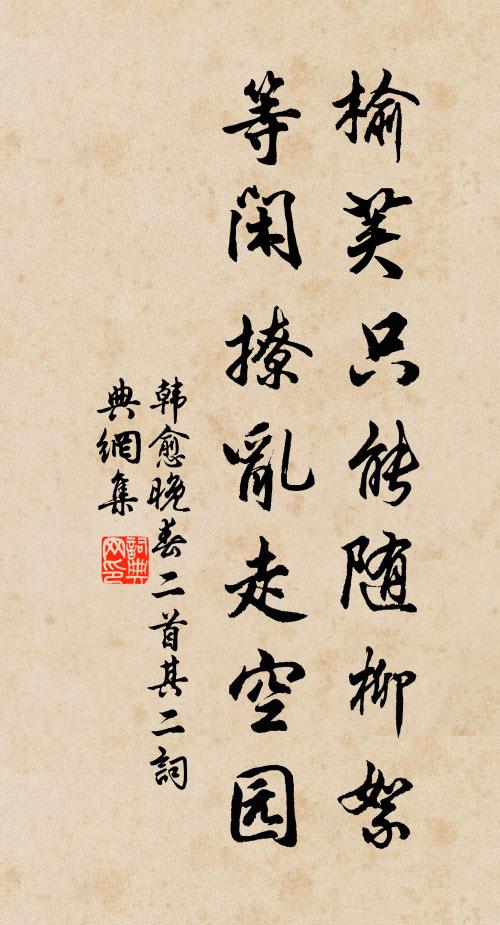 榆荚只能随柳絮
等闲撩亂走空园
韩愈晚春二首其二詞
典網集
詞典网印